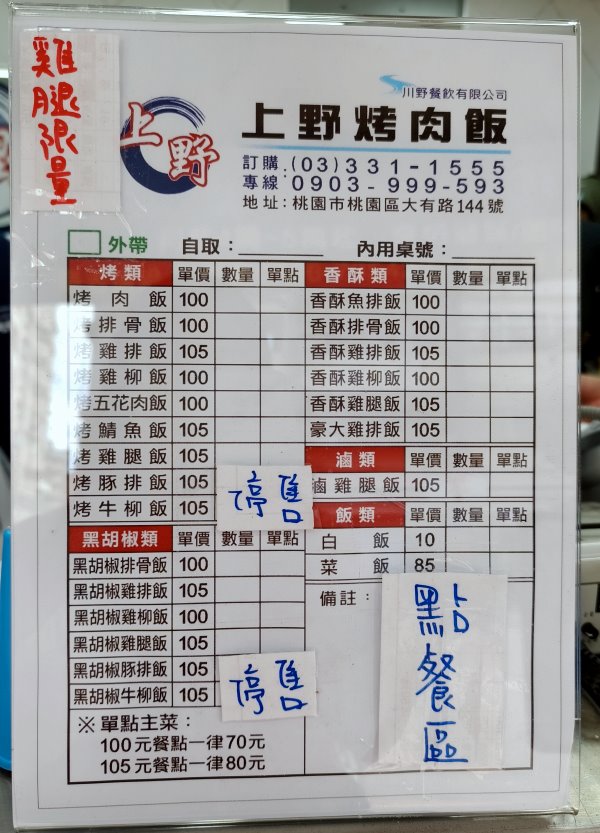 雞腿限量
上野
川野餐飲有限公司
上野烤肉飯
訂購專線:(03)331-1555
0903-999-593
地址:桃園市桃園區大有路144號
外帶 自取: 內用桌號:
烤類 單價 數量 單點
烤肉飯 100
烤排骨飯 100
烤雞排飯 105
烤雞柳飯 100
烤五花肉飯 100
烤鯖魚飯 105
烤雞腿飯 105
烤豚排飯 105
烤牛柳飯 105
停售
黑胡椒類 單價 數量 單點
黑胡椒排骨飯 100
黑胡椒雞排飯 105
黑胡椒雞柳飯 100
黑胡椒雞腿飯 105
黑胡椒豚排飯 105
黑胡椒牛柳飯 105
停售
※單點主菜:
100元餐點一律70元
105元餐點一律80元
香酥類 單價 數量 單點
香酥魚排飯 100
香酥排骨飯 100
香酥雞排飯 105
香酥雞柳飯 100
香酥雞腿飯 105
豪大雞排飯 105
滷類 單價 數量 單點
滷雞腿飯 105
飯類 單價 數量 單點
白飯 10
菜飯 85
備註:
點餐區